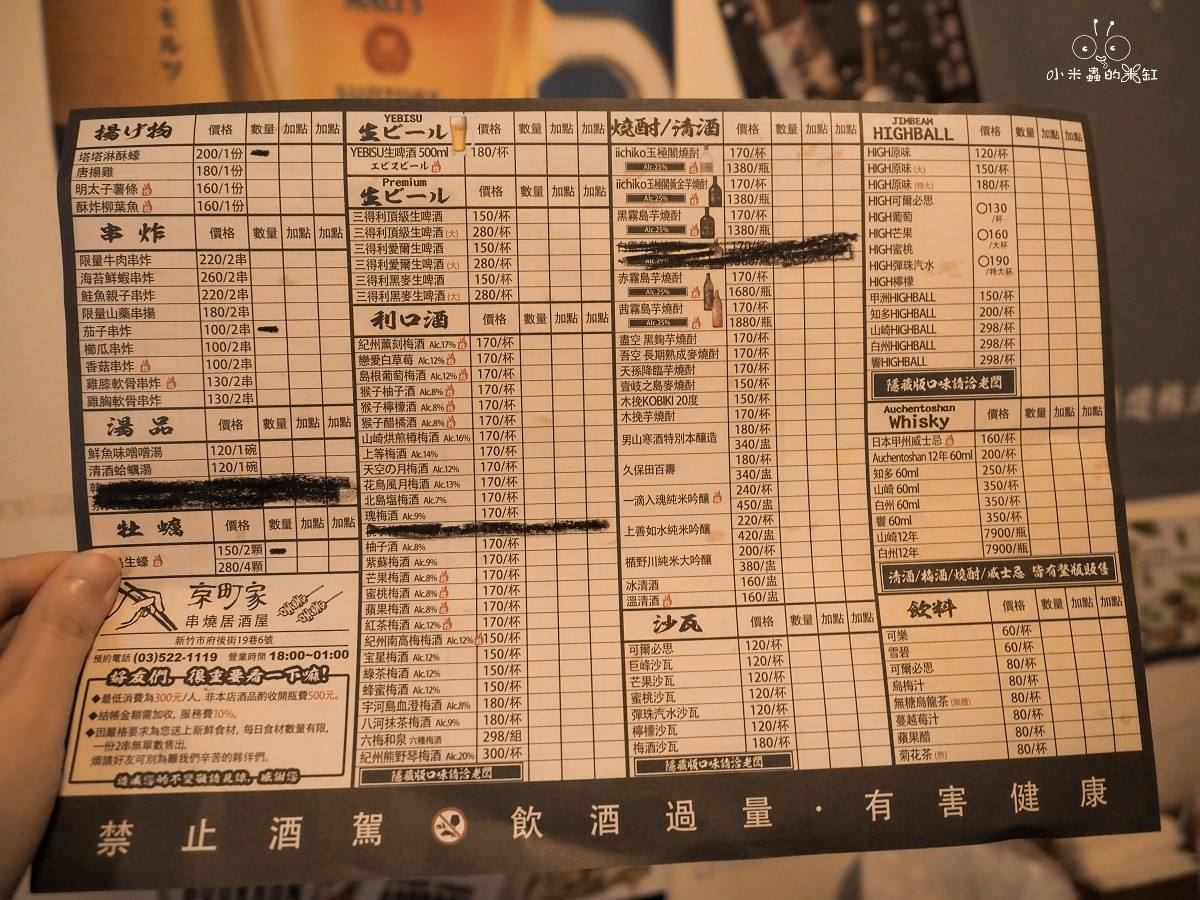 モルツ
MALT'S
SUNTORY
小米蟲的米缸
揚げ物 價格 數量 加點 加點
塔塔淋酥蠔 200/1份
唐揚雞 180/1份
明太子薯條 160/1份
酥炸柳葉魚 160/1份
串炸 價格 數量 加點 加點
限量牛肉串炸 220/2串
海苔鮮蝦串炸 260/2串
鮭魚親子串炸 220/2串
限量山藥串揚 180/2串
茄子串炸 100/2串
櫛瓜串炸 100/2串
香菇串炸 100/2串
雞膝軟骨串炸 130/2串
雞胸軟骨串炸 130/2串
湯品 價格 數量 加點 加點
鮮魚味噌噌湯 120/1碗
清酒蛤蠣湯 120/1碗
牡蠣 價格 數量 加點 加點
生蠔 150/2顆
280/4顆
京町家
串燒居酒屋
新竹市府後街19巷6號
預約電話 (03)522-1119 營業時間 18:00~01:00
好友們，很重要看一下嘛!
◆最低消費為300元/人, 非本店酒品酌收開瓶費500元。
◆結帳金額需加收, 服務費10%。
◆因嚴格要求為您送上新鮮食材, 每日食材數量有限,
一份2串無單數售出,
煩請好友可別為難我們辛苦的夥伴們。
造成您的不便敬請見諒，感謝您
YEBISU
生ビール 價格 數量 加點 加點
YEBISU生啤酒 500ml 180/杯
エビスビール
Premium
生ビール 價格 數量 加點 加點
三得利頂級生啤酒 150/杯
三得利頂級生啤酒 (大) 280/杯
三得利愛爾生啤酒 150/杯
三得利愛爾生啤酒 (大) 280/杯
三得利黑麥生啤酒 150/杯
三得利黑麥生啤酒 (大) 280/杯
利口酒 價格 數量 加點 加點
紀州薰刻梅酒 Alc.17% 170/杯
戀愛白草莓 Alc.12% 170/杯
島根葡萄梅酒 Alc.12% 170/杯
猴子柚子酒 Alc.8% 170/杯
猴子檸檬酒 Alc.8% 170/杯
猴子醋橘酒 Alc.8% 170/杯
山崎烘煎樽梅酒 Alc.16% 170/杯
上等梅酒 Alc.14% 170/杯
天空の月梅酒 Alc.12% 170/杯
花鳥風月梅酒 Alc.13% 170/杯
北島塩梅酒 Alc.7% 170/杯
瑰梅酒 Alc.9% 170/杯
柚子酒 Alc.8% 170/杯
紫蘇梅酒 Alc.9% 170/杯
芒果梅酒 Alc.8% 170/杯
蜜桃梅酒 Alc.8% 170/杯
蘋果梅酒 Alc.8% 170/杯
紅茶梅酒 Alc.12% 170/杯
紀州南高梅梅酒 Alc.12% 150/杯
宝星梅酒 Alc.12% 150/杯
綠茶梅酒 Alc.12% 150/杯
蜂蜜梅酒 Alc.12% 150/杯
宇河島血澄梅酒 Alc.8% 180/杯
八河抹茶梅酒 Alc.9% 180/杯
六梅和泉 六種梅酒 298/組
紀州熊野琴梅酒 Alc.20% 300/杯
隱藏版口味請洽老闆
燒酎/清酒 價格 數量 加點 加點
iichiko玉極閣燒酎 170/杯
Alc.25% 1380/瓶
iichiko玉極閣黃金芋燒酎 170/杯
Alc.25% 1380/瓶
黑霧島芋燒酎 170/杯
Alc.25% 1380/瓶
赤霧島芋燒酎 170/杯
Alc.25% 1680/瓶
茜霧島芋燒酎 170/杯
Alc.25% 1880/瓶
盡空 黑麴芋燒酎 170/杯
吾空 長期熟成麥燒酎 170/杯
天孫降臨芋燒酎 170/杯
壹岐之島麥燒酎 150/杯
木挽KOBIKI 20度 150/杯
木挽芋燒酎 170/杯
男山寒酒特別本釀造 180/杯
340/盅
久保田百壽 180/杯
340/盅
一滴入魂純米吟釀 240/杯
450/盅
上善如水純米吟釀 220/杯
420/盅
楯野川純米大吟釀 200/杯
380/盅
冰清酒 160/盅
溫清酒 160/盅
沙瓦 價格 數量 加點 加點
可爾必思 120/杯
巨峰沙瓦 120/杯
芒果沙瓦 120/杯
蜜桃沙瓦 120/杯
彈珠汽水沙瓦 120/杯
檸檬沙瓦 120/杯
梅酒沙瓦 180/杯
隱藏版口味請洽老闆
JIMBEAM
HIGHBALL 價格 數量 加點 加點
HIGH原味 120/杯
HIGH原味 (大) 150/杯
HIGH原味 (特大) 180/杯
HIGH可爾必思
HIGH葡萄
HIGH芒果
HIGH蜜桃
HIGH彈珠汽水
HIGH檸檬
○130/杯
○160/大杯
○190/特大杯
甲洲HIGHBALL 150/杯
知多HIGHBALL 200/杯
山崎HIGHBALL 298/杯
白州HIGHBALL 298/杯
響HIGHBALL 298/杯
隱藏版口味請洽老闆
Auchentoshan
Whisky 價格 數量 加點 加點
日本甲州威士忌 160/杯
Auchentoshan 12年 60ml 200/杯
知多 60ml 250/杯
山崎 60ml 350/杯
白州 60ml 350/杯
響 60ml 350/杯
山崎12年 7900/瓶
白州12年 7900/瓶
清酒/梅酒/燒酎/威士忌 皆有整瓶販售
飲料 價格 數量 加點 加點
可樂 60/杯
雪碧 60/杯
可爾必思 80/杯
烏梅汁 80/杯
無糖烏龍茶 (無糖) 80/杯
蔓越莓汁 80/杯
蘋果醋 80/杯
菊花茶 (熱) 80/杯
禁止酒駕 飲酒過量·有害健康